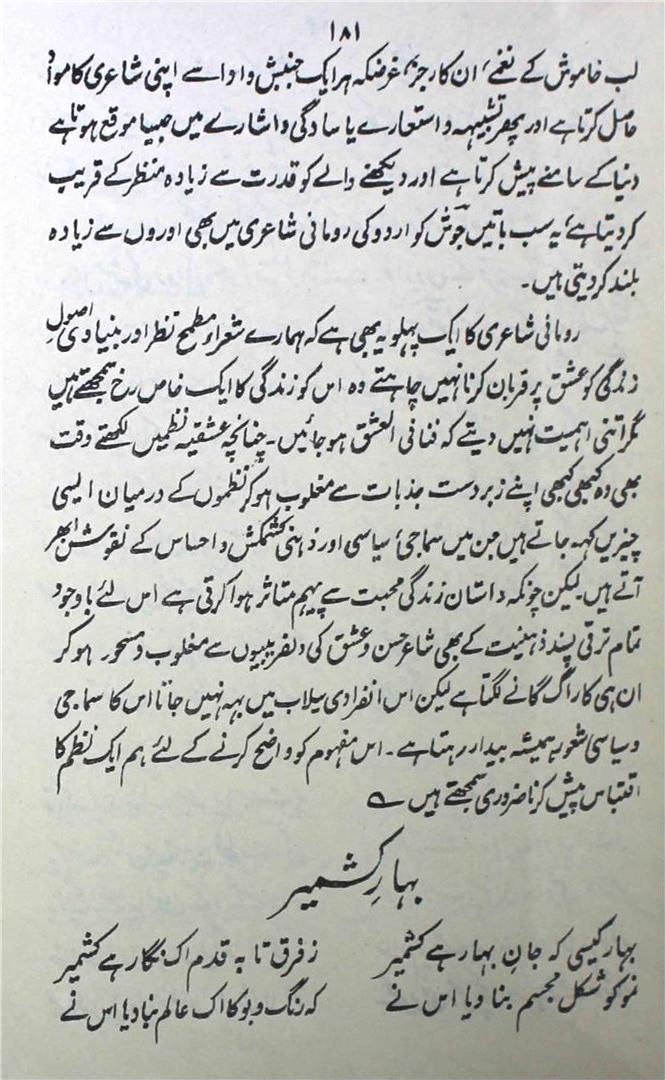 ۱۸۱
لب خاموش کے نغمے، ان کا رجز، غرضکہ ہر ایک جنبش و ادا سے اپنی شاعری کا مواد
حاصل کرتا ہے اور پھر تشبیہہ و استعارے یا سادگی و اشارے میں جیسا موقع ہوتا ہے
دنیا کے سامنے پیش کرتا ہے اور دیکھنے والے کو قدرت سے زیادہ منظر کے قریب
کر دیتا ہے، یہ سب باتیں جوشؔ کو اردو کی رومانی شاعری میں بھی اوروں سے زیادہ
بلند کر دیتی ہیں۔
رومانی شاعری کا ایک پہلو یہ بھی ہے کہ ہمارے شعراء مطمح نظر اور بنیادی اصولِ
زندگی کو عشق پر قربان کرنا نہیں چاہتے وہ اس کو زندگی کا ایک خاص رخ سمجھتے ہیں
مگر اتنی اہمیت نہیں دیتے کہ فنا فی العشق ہو جائیں۔ چنانچہ عشقیہ نظمیں لکھتے وقت
بھی وہ کبھی کبھی اپنے زبردست جذبات سے مغلوب ہو کر نظموں کے درمیان ایسی
چیزیں کہہ جاتے ہیں جن میں سماجی، سیاسی اور ذہنی کشمکش و احساس کے نقوش ابھر
آتے ہیں۔ لیکن چونکہ داستان زندگی محبت سے پیہم متاثر ہوا کرتی ہے اس لئے باوجود
تمام ترقی پسند ذہنیت کے بھی شاعر حسن و عشق کی دلفریبیوں سے مغلوب و مسحور ہو کر
ان ہی کا راگ گانے لگتا ہے لیکن اس انفرادی سیلاب میں بہہ نہیں جاتا اس کا سماجی
و سیاسی شعور ہمیشہ بیدار رہتا ہے۔ اس مفہوم کو واضح کرنے کے لئے ہم ایک نظم کا
اقتباس پیش کرنا ضروری سمجھتے ہیں ؎
بہارِ کشمیر
بہار کیسی کہ جانِ بہار ہے کشمیر زفرق تا بہ قدم اک نگار ہے کشمیر
نمو کو شکل مجسم بنا دیا اس نے کہ رنگ و بو کا اک عالم بنا دیا اس نے